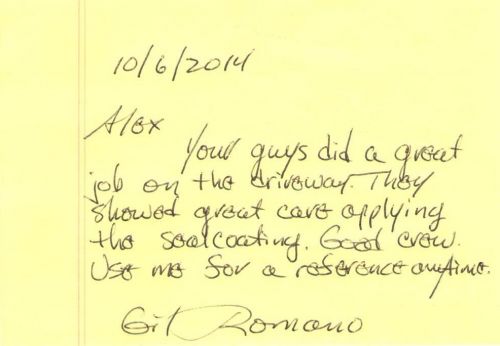 10/6/2014
Alex
Your guys did a great
job on the driveway. They
showed great care applying
the sealcoating. Good crew.
Use me for a reference anytime.
Gil Romano